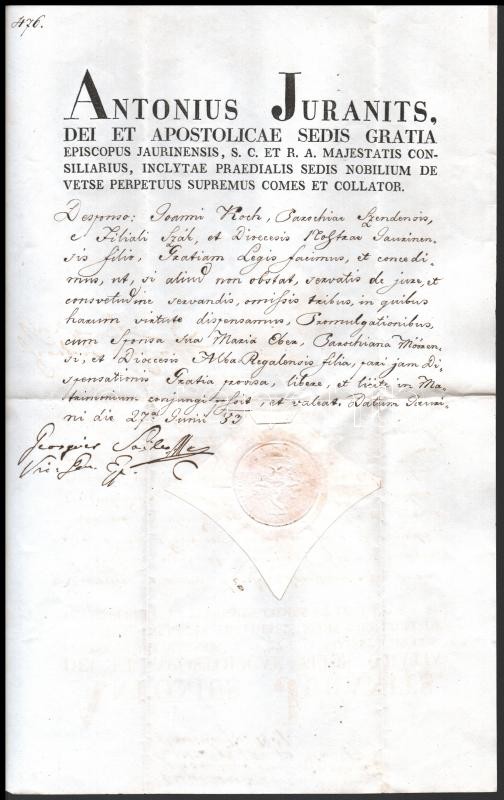 476.
ANTONIUS JURANITS,
DEI ET APOSTOLICAE SEDIS GRATIA
EPISCOPUS JAURINENSIS, S. C. ET R. A. MAJESTATIS CON-
SILIARIUS, INCLYTAE PRAEDIALIS SEDIS NOBILIUM DE
VETSE PERPETUUS SUPREMUS COMES ET COLLATOR.
Desponso: Joanni Koch, Parochiae Szendensis,
e Filiali Szák, et Dioecesis Nostrae Jaurinen-
sis filio, Gratiam Legis facimus, et concedi-
mus, ut, si aliud non obstat, servatis de jure, et
consvetudine servandis, omissis tribus, in quibus
harum virtute dispensamus, Promulgationibus,
cum Sponsa sua Maria Eber, Parochiana
si, et Dioecesis Alba Regalensis filia, pari jam Di-
spensationis Gratia provisa, libere, et licite in Ma-
trimonium conjungi possit, et valeat. Datum Jauri-
ni die 27a Junii
Georgius
Vic. Gen. Ep.